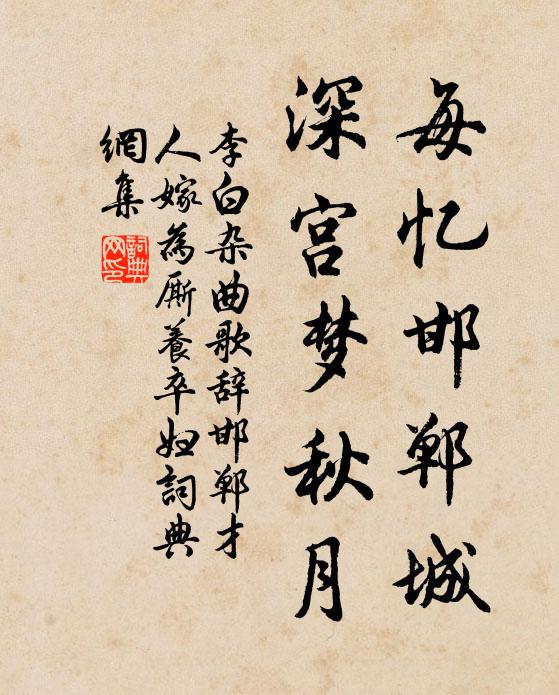 每忆邯郸城
深宫梦秋月
李白杂曲歌辞邯郸才
人嫁為厮養卒妇詞典
網集
詞典
网印